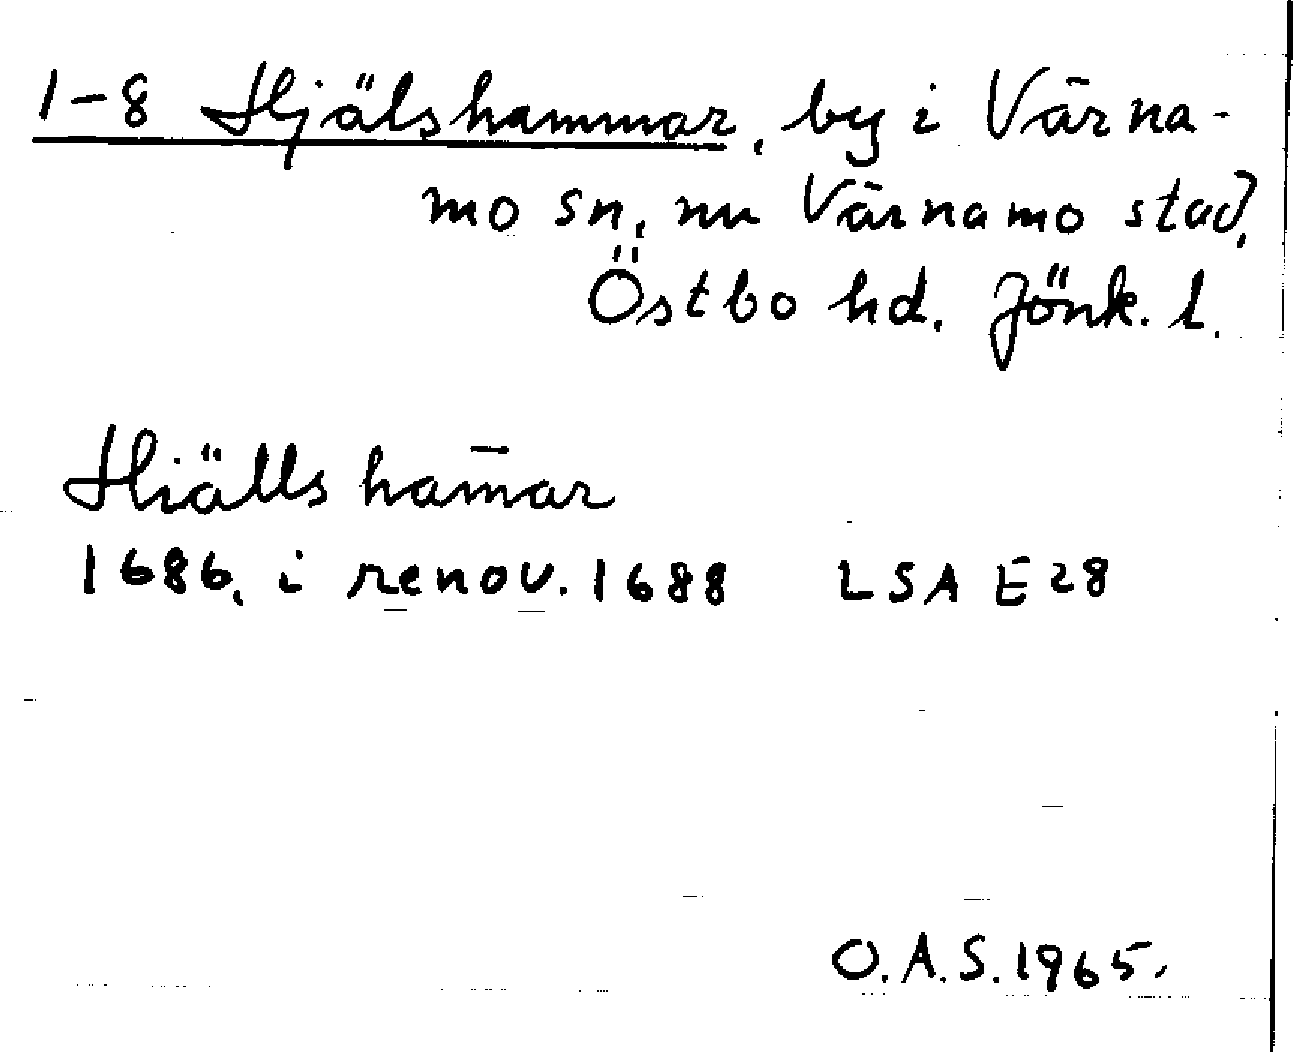 1-8 Hjälshammar, by i Värna-
mo sn, nu Värnamo stad,
Östbo hd. Jönk. l.
Hiälls ham̄ar
1686, i renov. 1688 LSA E28
O.A.S. 1965.